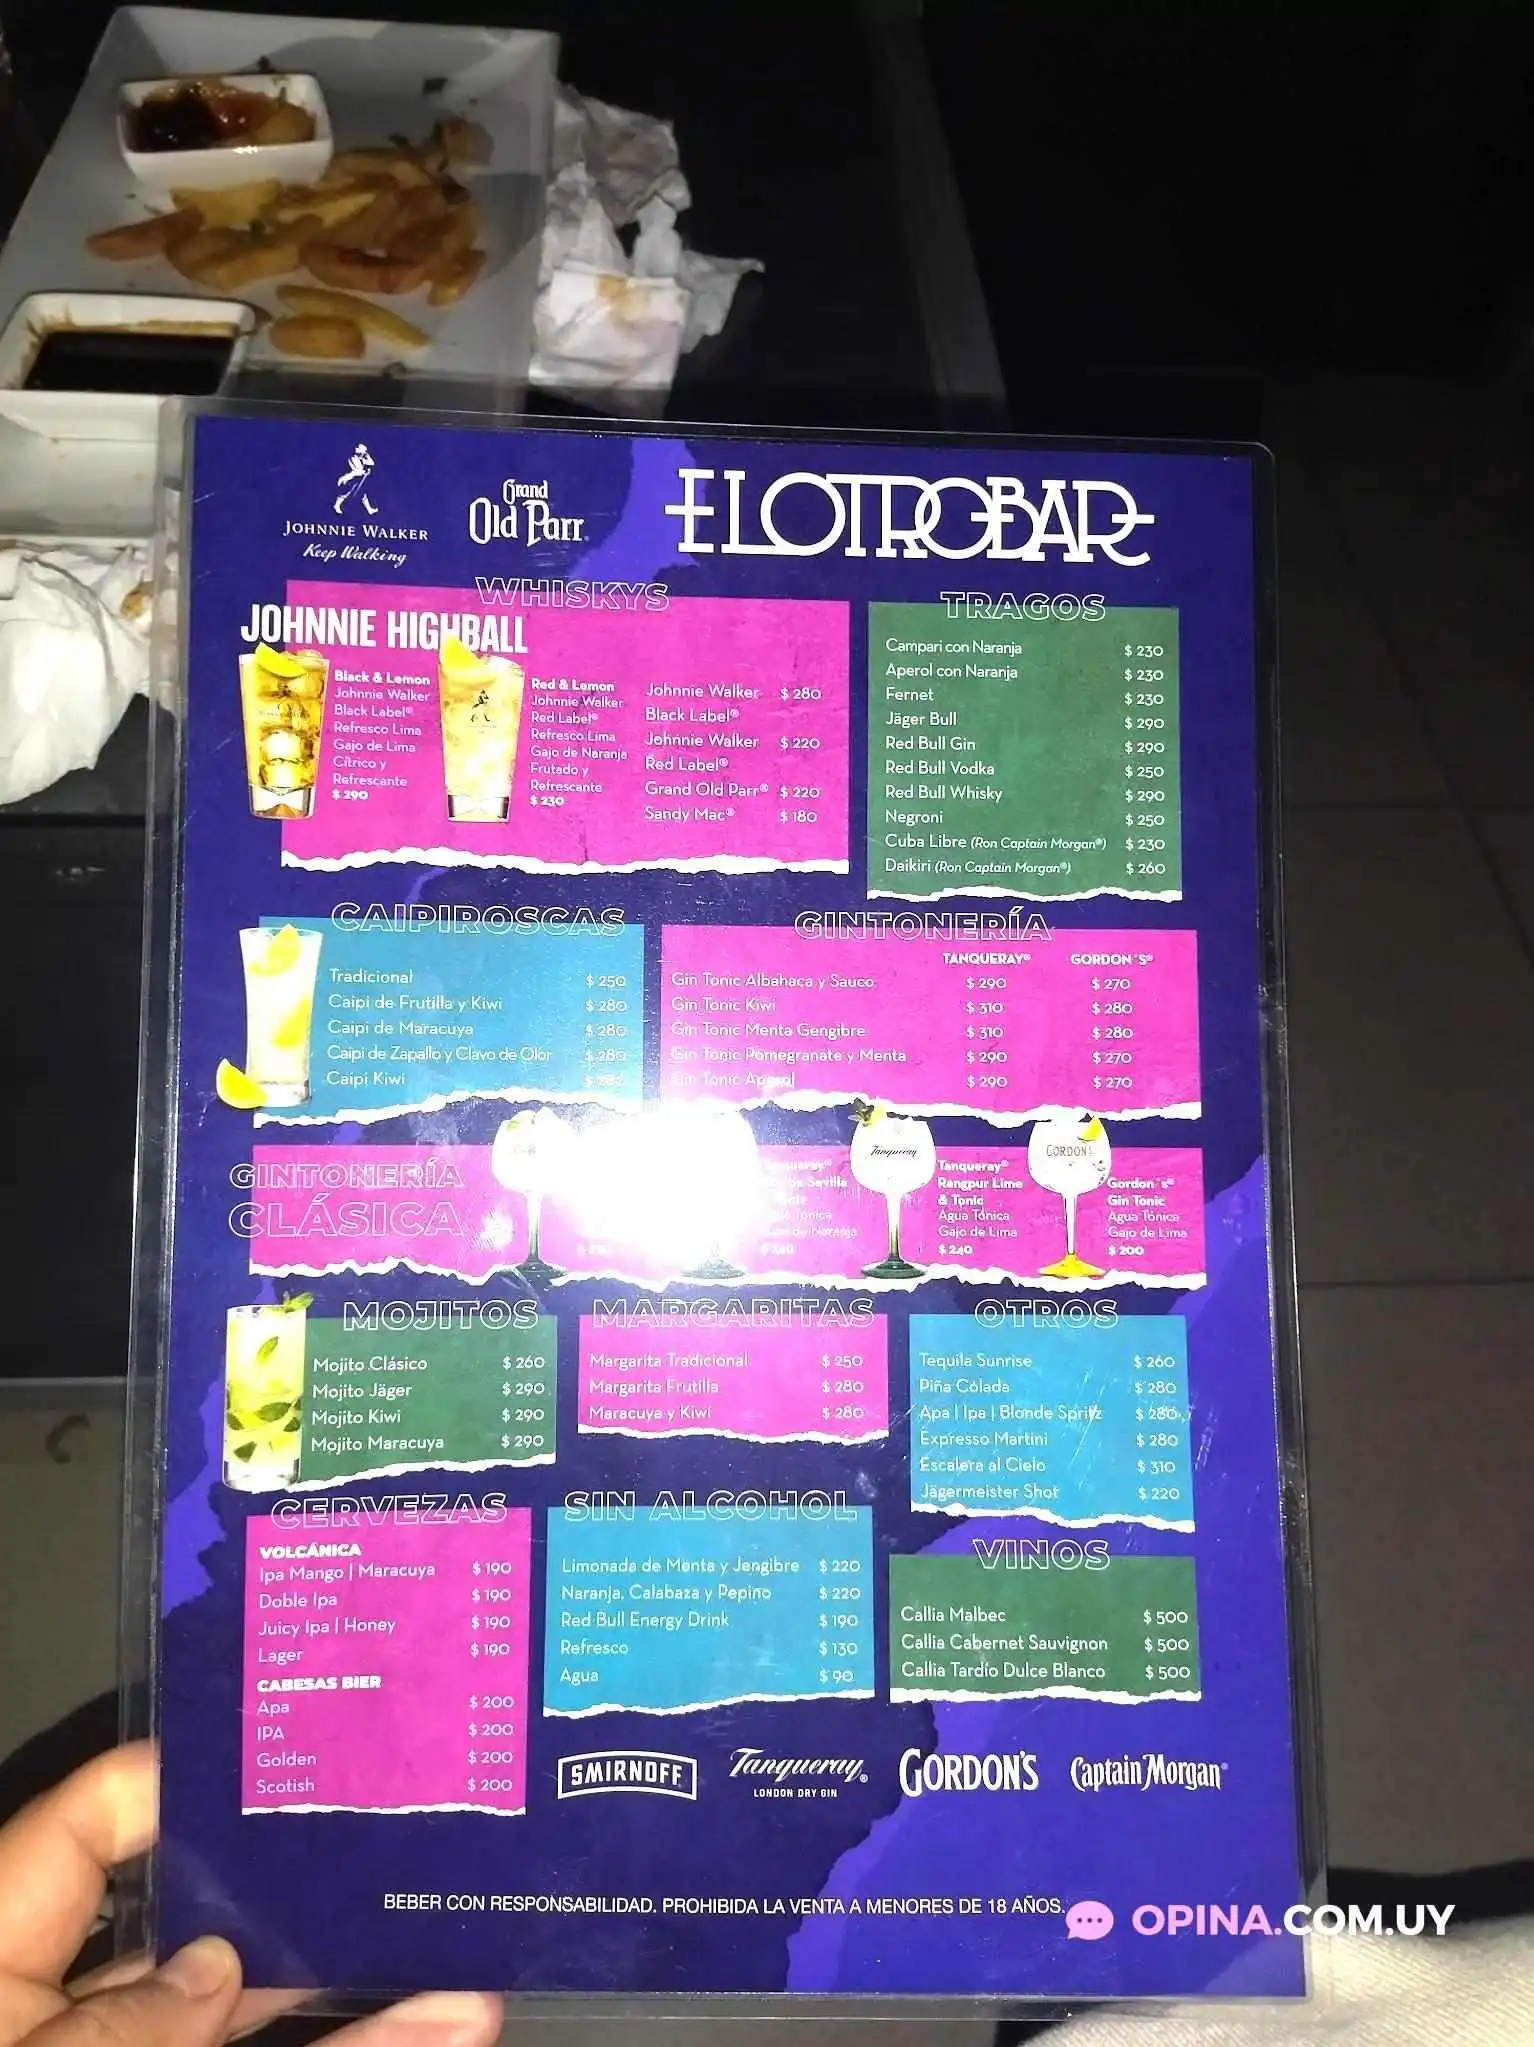 JOHNNIE WALKER
Keep Walking
Grand
Old Parr
ELOTROBAR
WHISKYS
JOHNNIE HIGHBALL
Black & Lemon
Johnnie Walker
Black Label®
Refresco Lima
Gajo de Lima
Cítrico y
Refrescante
$ 290
Red & Lemon
Johnnie Walker
Red Label®
Refresco Lima
Gajo de Naranja
Frutado y
Refrescante
$ 230
Johnnie Walker $ 280
Black Label®
Johnnie Walker $ 220
Red Label®
Grand Old Parr® $ 220
Sandy Mac® $ 180
TRAGOS
Campari con Naranja $ 230
Aperol con Naranja $ 230
Fernet $ 230
Jäger Bull $ 290
Red Bull Gin $ 290
Red Bull Vodka $ 250
Red Bull Whisky $ 290
Negroni $ 250
Cuba Libre (Ron Captain Morgan®) $ 230
Daikiri (Ron Captain Morgan®) $ 260
CAIPIROSCAS
Tradicional $ 250
Caipi de Frutilla y Kiwi $ 280
Caipi de Maracuya $ 280
Caipi de Zapallo y Clavo de Olor $ 280
Caipi Kiwi
GINTONERÍA
TANQUERAY® GORDON´S®
Gin Tonic Albahaca y Sauco $ 290 $ 270
Gin Tonic Kiwi $ 310 $ 280
Gin Tonic Menta Gengibre $ 310 $ 280
Gin Tonic Pomegranate y Menta $ 290 $ 270
Gin Tonic Aperol $ 290 $ 270
GINTONERÍA
CLÁSICA
Sevilla
Tónica
de Naranja
Tanqueray
Tanqueray®
Rangpur Lime
& Tonic
Agua Tónica
Gajo de Lima
$ 240
GORDON'S
Gordon´s®
Gin Tonic
Agua Tónica
Gajo de Lima
$ 200
MOJITOS
Mojito Clásico $ 260
Mojito Jäger $ 290
Mojito Kiwi $ 290
Mojito Maracuya $ 290
MARGARITAS
Margarita Tradicional $ 250
Margarita Frutilla $ 280
Maracuya y Kiwi $ 280
OTROS
Tequila Sunrise $ 260
Piña Colada $ 280
Apa | Ipa | Blonde Spritz $ 280
Expresso Martini $ 280
Escalera al Cielo $ 310
Jägermeister Shot $ 220
CERVEZAS
VOLCÁNICA
Ipa Mango | Maracuya $ 190
Doble Ipa $ 190
Juicy Ipa | Honey $ 190
Lager $ 190
CABESAS BIER
Apa $ 200
IPA $ 200
Golden $ 200
Scotish $ 200
SIN ALCOHOL
Limonada de Menta y Jengibre $ 220
Naranja, Calabaza y Pepino $ 220
Red Bull Energy Drink $ 190
Refresco $ 130
Agua $ 90
VINOS
Callia Malbec $ 500
Callia Cabernet Sauvignon $ 500
Callia Tardío Dulce Blanco $ 500
SMIRNOFF
Tanqueray®
LONDON DRY GIN
GORDON'S
Captain Morgan®
BEBER CON RESPONSABILIDAD. PROHIBIDA LA VENTA A MENORES DE 18 AÑOS.
OPINA.COM.UY